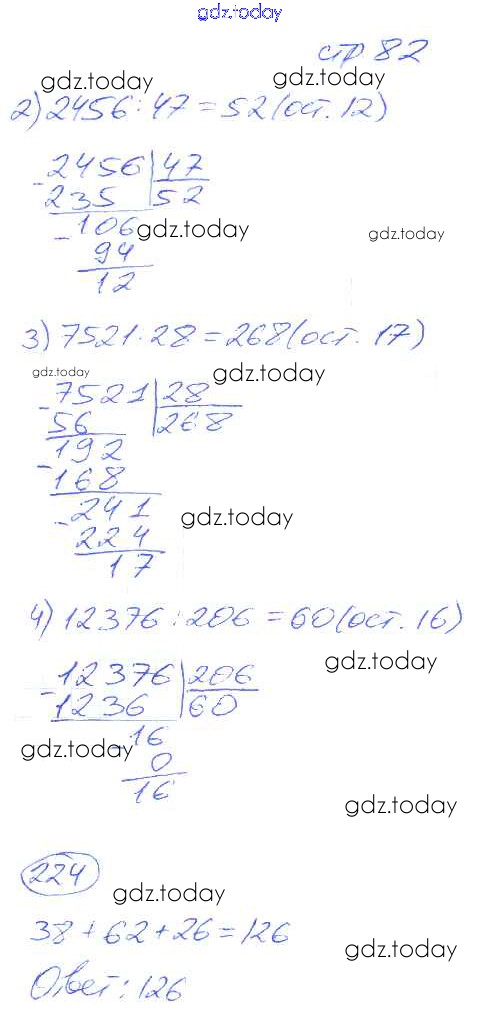 gdz.today
стр 82
gdz.today gdz.today
2) 2456 : 47 = 52 (ост. 12)
- 2456 | 47
235 | 52
- 106 gdz.today gdz.today
94
12
3) 7521 · 28 = 268 (ост. 17)
gdz.today gdz.today
- 7521 | 28
56 | 268
- 192
168
- 241 gdz.today
224
17
4) 12376 : 206 = 60 (ост. 16)
gdz.today
- 12376 | 206
1236 | 60
- 16
gdz.today 0
16
gdz.today
224
gdz.today
38 + 62 + 26 = 126
gdz.today
Ответ: 126